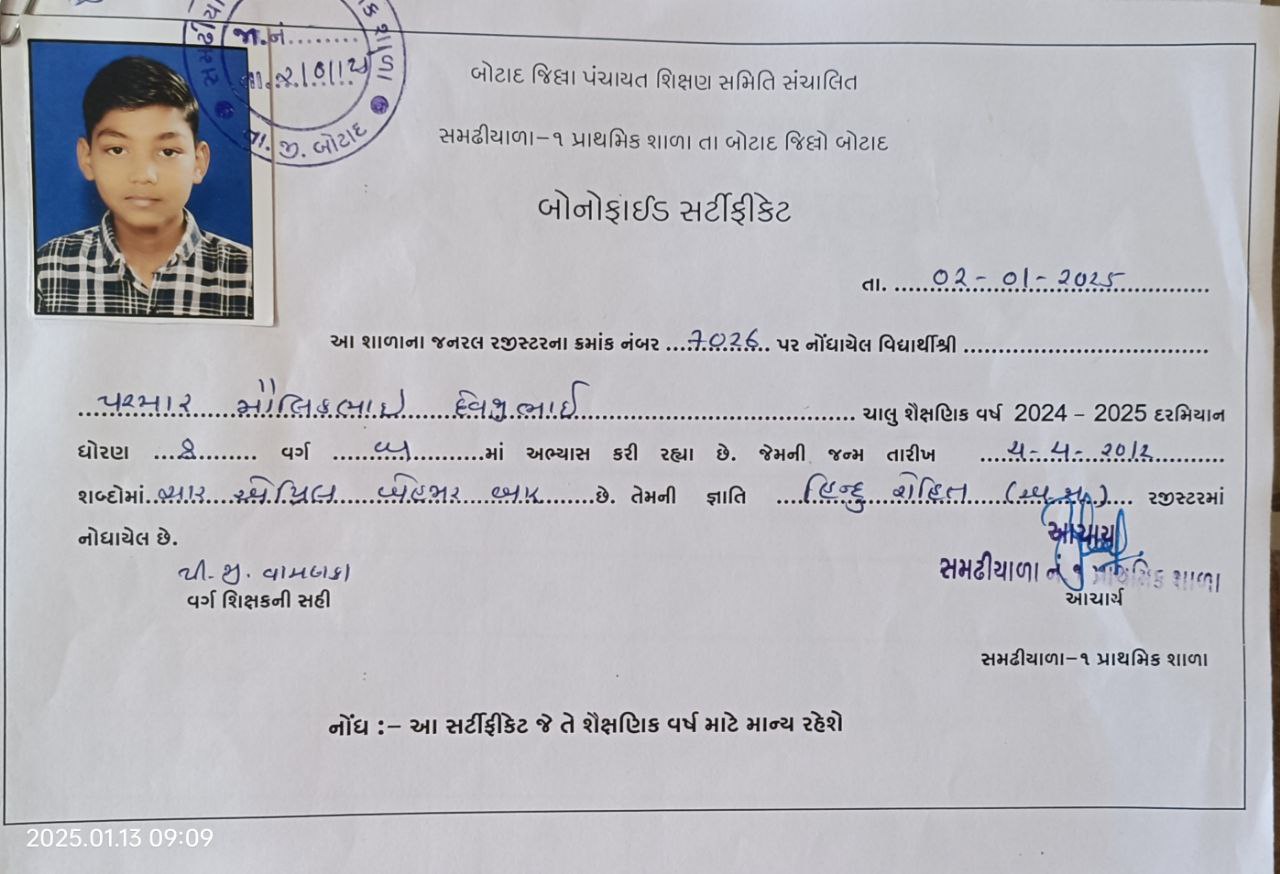 જા.નં........
તા. જી. બોટાદ
બોટાદ જિલ્લા પંચાયત શિક્ષણ સમિતિ સંચાલિત
સમઢીયાળા-૧ પ્રાથમિક શાળા તા બોટાદ જિલ્લો બોટાદ
બોનોફાઈડ સર્ટીફીકેટ
તા. ......02-01-2025......
આ શાળાના જનરલ રજીસ્ટરના ક્રમાંક નંબર ...7026... પર નોંધાયેલ વિદ્યાર્થીશ્રી ......
પરમાર મૌલિકભાઇ દેવજીભાઈ ...... ચાલુ શૈક્ષણિક વર્ષ 2024 - 2025 દરમિયાન
ધોરણ ...8... વર્ગ ...... માં અભ્યાસ કરી રહ્યા છે. જેમની જન્મ તારીખ ...4-4-2012...
શબ્દોમાં..ચાર એપ્રિલ બેહજાર બાર......છે. તેમની જ્ઞાતિ ...હિન્દુ રોહિત...... રજીસ્ટરમાં
નોધાયેલ છે.
પી. જી. વામબકા
વર્ગ શિક્ષકની સહી
આચાર્ય
સમઢીયાળા નં. ૧ પ્રાથમિક શાળા
આચાર્ય
સમઢીયાળા-૧ પ્રાથમિક શાળા
નોંધ :- આ સર્ટીફીકેટ જે તે શૈક્ષણિક વર્ષ માટે માન્ય રહેશે
2025.01.13 09:09